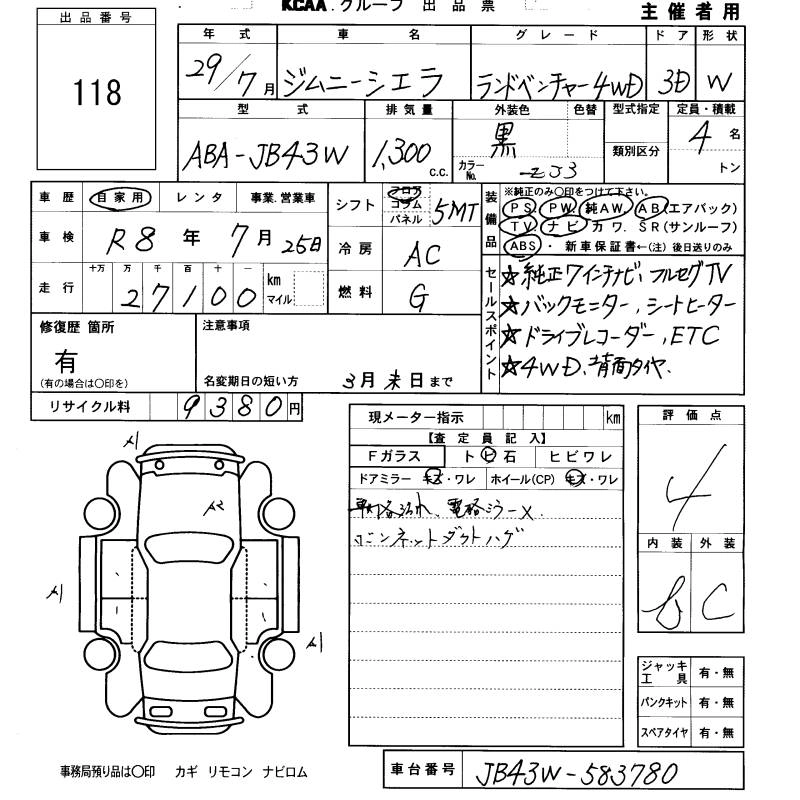 KCAA.グループ 出品票
主催者用
出品番号
118
年式 車名 グレード ドア 形状
29/7月 ジムニーシエラ ランドベンチャー4WD 3D W
型式 排気量 外装色 色替 型式指定 定員・積載
ABA-JB43W 1,300 c.c. 黒 カラーNo. ZJ3 類別区分 4名 トン
車歴 自家用 レンタ 事業.営業車
シフト フロア コラム パネル 5MT
車検 R8年 7月 25日
冷房 AC
走行 十万 万 千 百 十 一 km マイル
27100
燃料 G
装備品 ※純正のみ○印をつけて下さい。
PS PW 純AW. AB(エアバック)
TV. ナビ カワ. SR(サンルーフ)
ABS・新車保証書←(注)後日送りのみ
セールスポイント
☆純正7インチナビ、フルセグTV
☆バックモニター,シートヒーター
☆ドライブレコーダー,ETC
☆4WD、背面タイヤ.
修復歴 箇所 注意事項
有
(有の場合は○印を) 名変期日の短い方 3月末日まで
リサイクル料 9380円
現メーター指示 km
【査定員記入】
Fガラス トビ石 ヒビワレ
ドアミラー キズ・ワレ ホイール(CP) キズ・ワレ
電格ミラー×.
ンネットダクトハゲ
評価点
4
内装 外装
B C
A1
A2
A1
A1
ジャッキ工具 有・無
パンクキット 有・無
スペアタイヤ 有・無
事務局預り品は○印 カギ リモコン ナビロム
車台番号 JB43W-583780